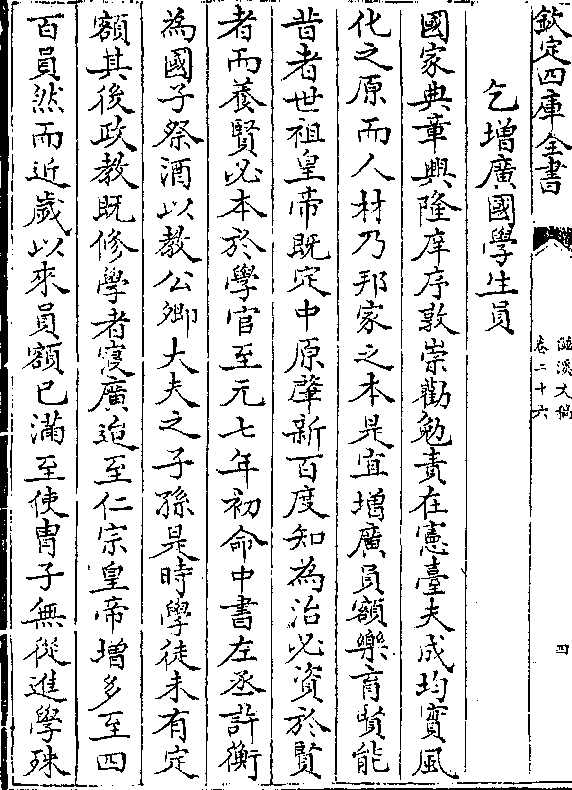 欽定四庫全書
滋溪文稿
卷二十六
四
乞增廣國學生員
國家典章興隆庠序敦崇勸勉責在憲臺夫成均實風
化之原而人材乃邦家之本是宜增廣員額樂育賢能
昔者世祖皇帝既定中原肇新百度知為治必資於賢
者而養賢必本於學官至元七年初命中書左丞許衡
為國子祭酒以教公卿大夫之子孫是時學徒未有定
額其後政教既修學者寖廣迨至仁宗皇帝增多至四
百員然而近歲以來員額已滿至使胄子無從進學殊